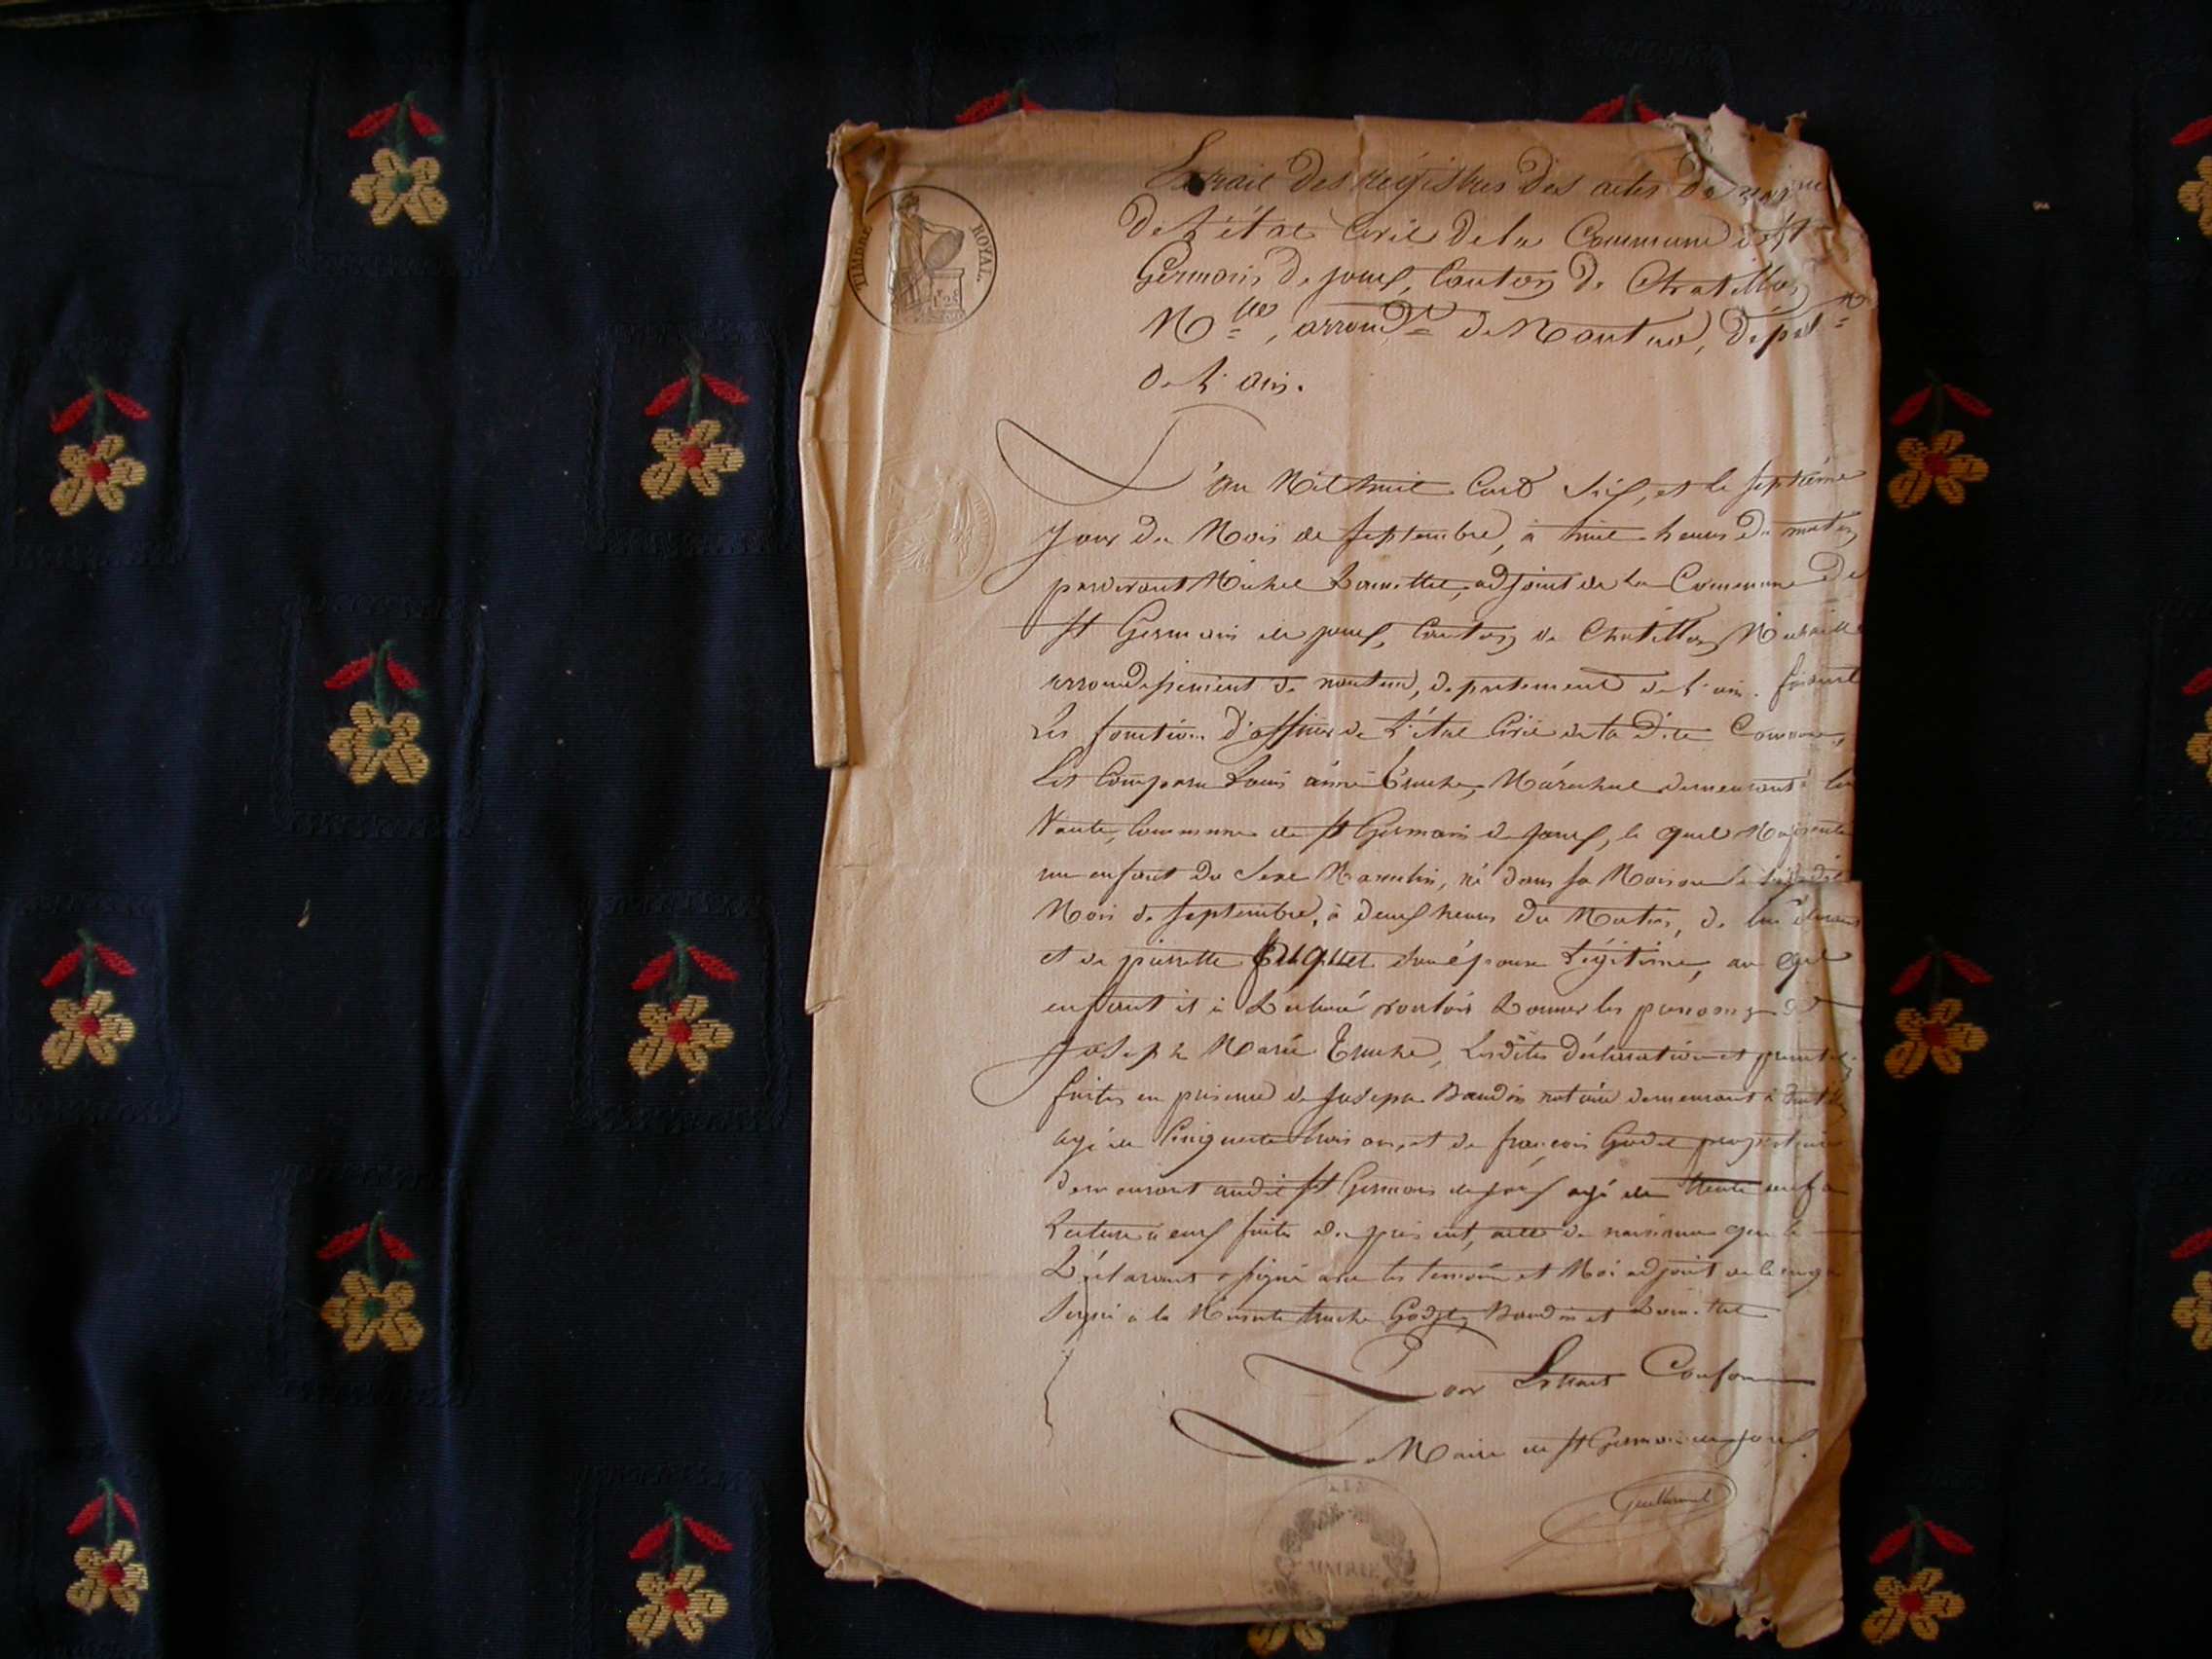 TIMBRE ROYAL.
Extrait des Régistres des actes de
De L'état Civil de la Commune de St
Germain de joux, Canton de Chatillon
Mlle, arrondt de Nantua, départt
De L'ain.
L'an Mil huit Cent Six, et le septième
Jour du Mois de Septembre, à huit heures du matin
pardevant Michel adjoint de la Commune de
St Germain de joux, Canton de Chatillon Michaille
arrondissement de nantua, departement de L'ain. faisant
Les fonction d'officier de L'état Civil de la dite Commune,
Est Comparu Louis aimé Truche, Maréchal demeurant à la
Voute, Commune de St Germain de Joux, le quel M'a présenté
un enfant du Sexe Masculin, né dans sa Maison le dit
Mois de Septembre, à deux heures du Matin, de lui déclarant
et de pierrette son épouse Légitime, au quel
enfant il à Déclaré vouloir Donner les prenoms de
Joseph Marie Truche, Lesdites déclaration et
faites en présence de Joseph Baudin notaire demeurant à
agé de Cinquante trois ans, et de françois Godet propriétaire
demeurant audit St Germain de Joux agé de trente
Lecture à eux faite du présent, acte de naissance que le
Déclarant a signé avec les temoins et Moi adjoint de le
Signé à la Minute truche Godet, Baudin et
Pour Extrait Conforme
Le Maire de St Germain de joux.
MAIRIE